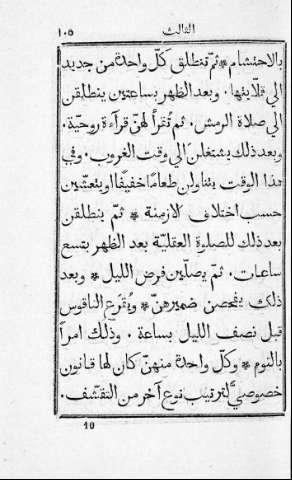 الثالث ١٠٥
بالاحتشام * ثمّ تنطلق كلّ واحدة من جديد
الي قلّايتها . وبعد الظهر بساعتين ينطلقن
الي صلاة الرمش . ثم تُقرأ لهنّ قرآءة روحيّة .
وبعد ذلك يشتغلن الي وقت الغروب . وفي
هذا الوقت يتناولن طعامًا خفيفًا او يتعشّين
حسب اختلاف الازمنة * ثمّ ينطلقن
بعد ذلك للصلوة العقليّة بعد الظهر بتسع
ساعات . ثم يصلّين فرض الليل * وبعد
ذلك يفحصن ضميرهنّ * ويُقرَع الناقوس
قبل نصف الليل بساعة . وذلك امرًا
بالنوم * وكلّ واحدة منهنّ كان لها قانون
خصوصيّ لترتيب نوع آخر من التقشّف .
10